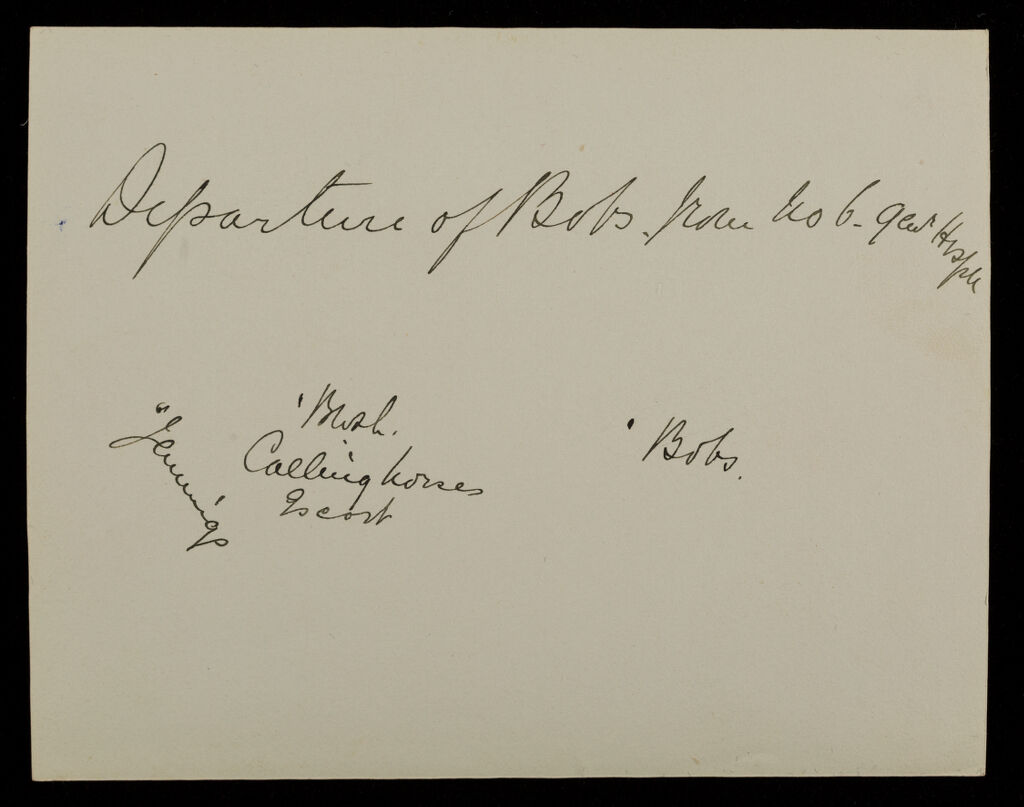 Departure of Bobs. from No 6. Genl Hospl
"Jennings
'Bush.
Calling horses
Escort
' Bobs.